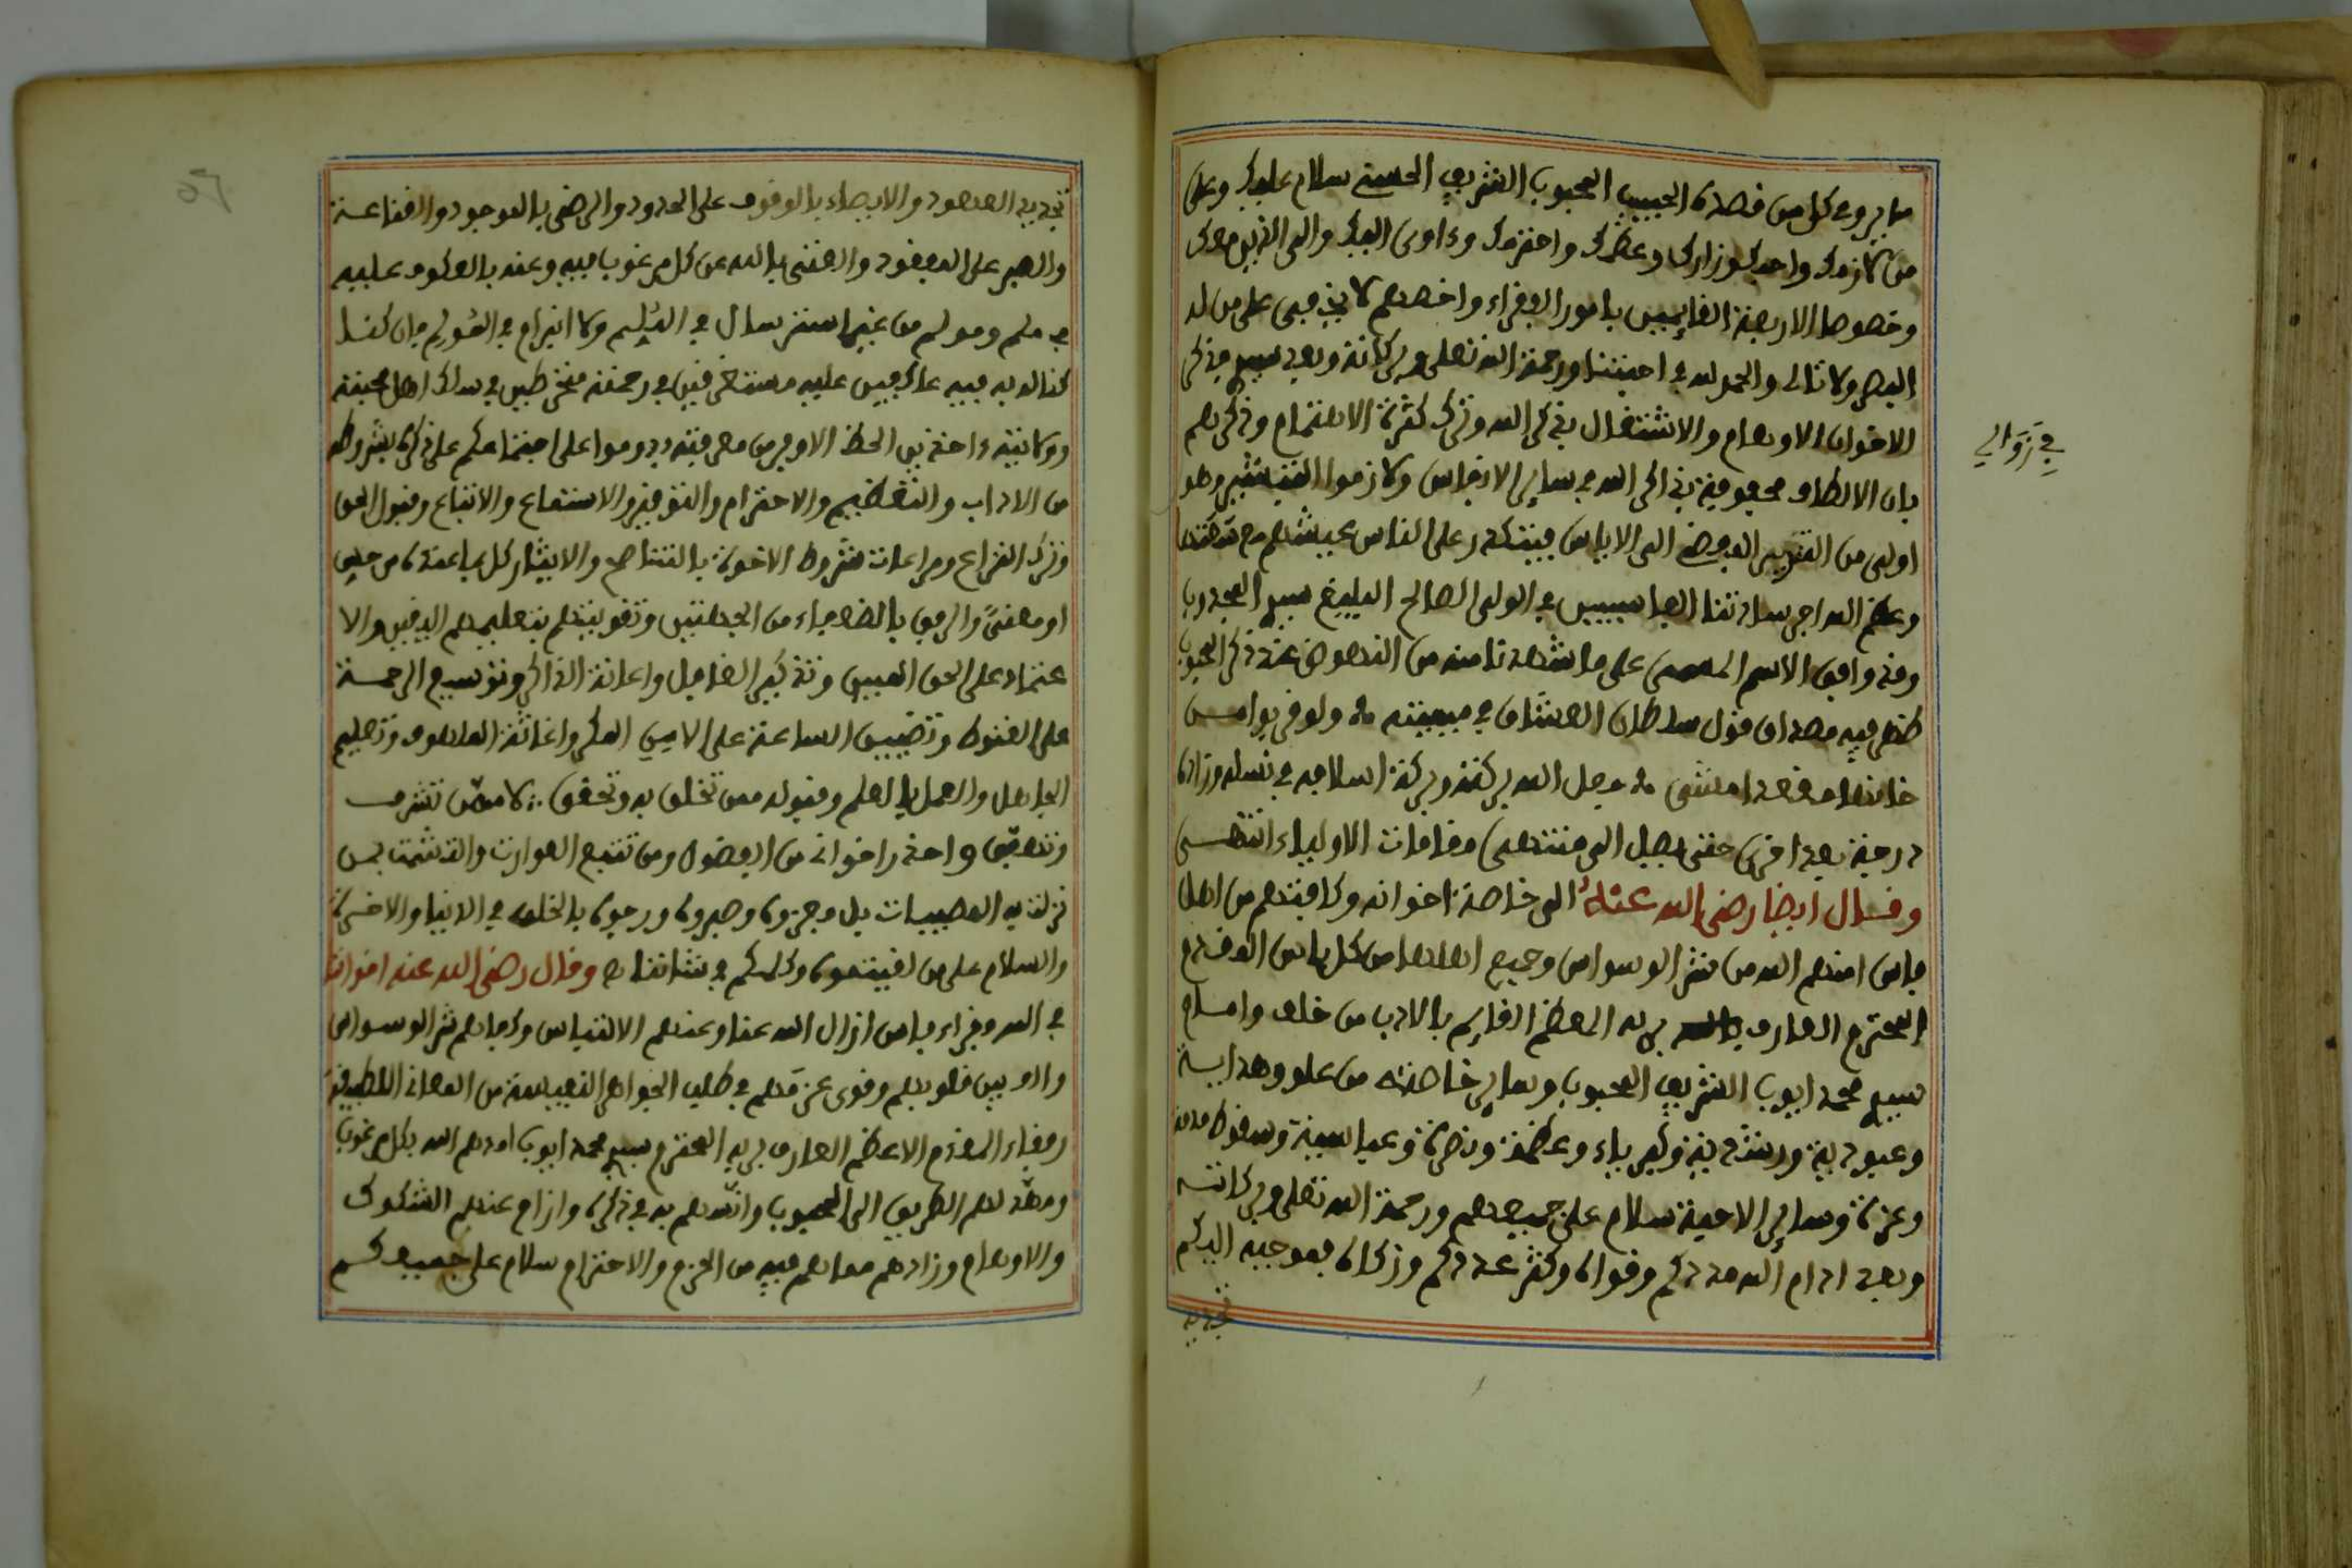 ما يروم كل من قصدك الحبيب المحبوب الشريف الحسني سلام عليك وعلى
من لازمك واحبك وزارك وعظمك واحترمك وءاوى اليك والى الذين معك
وخصوصا الاربعة القايمين بامور الفقراء واخصهم لا يخفى على من له
البصر ولا تالى والحمد لله في احبتنا ورحمة الله تعلى وبركاته وبعد فذكر
الاخوان الاوهام والاشتغال بذكر الله وترك كثرة الاهتمام وذكرهم
بان الالطاف محفوفة بذاكر الله في ساير الانفاس ولازموا التبشير وهو
اولى من المفضي الى الاياس فيتكدر على الناس عيشهم
وعظم الله اجر ساداتنا العباسيين في الولي الصالح البليغ سيدي المجدوب
وقد وافق الاسم المسمى على ما شهد تامنه من النصوص عند ذكر المحبوب
ظهر فيه مصداق قول سلطان العشاق في ميميته ولو قربوا من
خانها مقعدا مشى جعل الله بركته وبركة اسلافه في نسله وزادك
درجة بعد اخرى حتى تصل الى منتهى مقامات الاولياء انتهى
وقال ايضا رضي الله عنه الى خاصة اخوانه وكافتهم من اهل
فاس امنهم الله من شر الوسواس وجميع اهلها من كل باس المقدم
المحترم العارف بربه المعظم القايم بالادب من خلف وامام
سيدي محمد ايوب الشريف المحبوب وساير خاصته من علو وهداية
وعبودية ورشدية وكبرياء وعظمة ونصرة وعباسية
وعزة وساير الاحبة سلام على جميعهم ورحمة الله تعلى وبركاته
وبعد ادام الله مددكم وقواك وكثر عددكم وزكاك بموجبه اليكم
تجديد
في زوالي
تجديد العهود والايصاء بالوقوف على الحدود والرضى بالموجود والقناعة
والصبر على المفقود والغنى بالله عن كل مرغوب فيه وعنه بالعكوف عليه
في ملم ومولم من غير استرسال في ولا انبرام في فان كفلـ
كفاله به فيه عاكفين عليه مستغرقين في رحمته منخرطين في سلك اهل محبته
وولايته ءاخذين الحظ الاوفر من معرفته ودوموا على اجتماعكم على ذكرك بشروطه
من الاداب والتعظيم والاحترام والتوقير والاستماع والاتباع وقبول الحق
وترك النزاع ومراعات شروط الاخوة بالتناصح والايثار كل بما عندك من حسي
او معنى والرفق بالضعفاء من الجهتين وتقويتهم بتعليمهم اليقين والا
عتماد على الحق المبين وتذكير الغافل واعانة الذاكر وتوسيع الرحمة
على القنوط وتضييق الساعة على الامن المكر واغاثة الملهوف وتعليم
الجاهل والعمل بالعلم وقبوله ممن تخلق به وتحقق لا ممن تشرف
وتعمق واحذر اخوانه من الفضول ومن تتبع العورات والتشمت بمن
نزلت به المصيبات بل وجزوه وصبروه ورجوه بالخلف في الدنيا والاخرة
والسلام على من لقيتموه وكلكم في شاننا وقال رضي الله عنه اخواننا
في الله وفقراء فاس ازال الله عنا وعنهم الالتباس وكفاهم شر الوسواس
والف بين قلوبهم وقوى عزمهم في طلب الجواهر النفيسة من المعاني اللطيفة
رفقاء المقدم الاعظم العارف بربه المحترم سيدي محمد ايوب امدهم الله بكل مرغوب
ومهد لهم الطريق الى المحبوب وانسهم به في ذكره وازاح عنهم الشكوك
والاوهام وزادهم معاهم فيه من الحزم والاحترام سلام على جميعكم